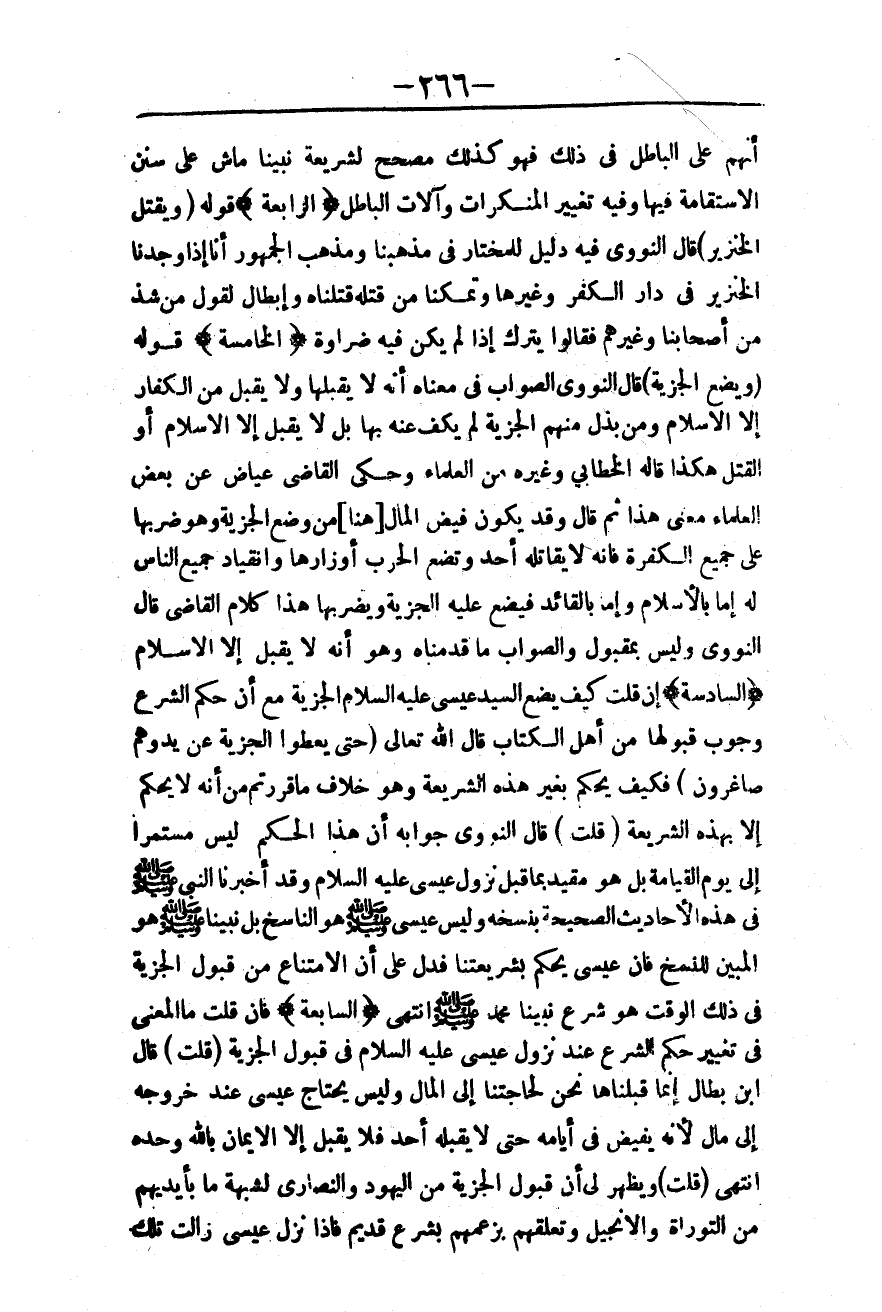 -٢٦٦-
أنهم على الباطل فى ذلك فهو كذلك مصحح لشريعة نبينا ماش على سنن
الاستقامة فيها وفيه تغيير المنكرات وآلات الباطل ﴿ الرابعة ﴾ قوله ( ويقتل
الخنزير ) قال النووى فيه دليل للمختار فى مذهبنا ومذهب الجمهور أنا إذا وجدنا
الخنزير فى دار الكفر وغيرها وتمكنا من قتله قتلناه وإبطال لقول من شذ
من أصحابنا وغيرهم فقالوا يترك إذا لم يكن فيه ضراوة ﴿ الخامسة ﴾ قوله
(ويضع الجزية) قال النووى الصواب فى معناه أنه لا يقبلها ولا يقبل من الكفار
إلا الاسلام ومن بذل منهم الجزية لم يكف عنه بها بل لا يقبل إلا الاسلام أو
القتل هكذا قاله الخطابي وغيره من العلماء وحكى القاضى عياض عن بعض
العلماء معنى هذا ثم قال وقد يكون فيض المال [هنا] من وضع الجزية وهو ضربها
على جميع الكفرة فانه لا يقاتله أحد وتضع الحرب أوزارها وانقياد جميع الناس
له إما بالأسلام وإما بالقائد فيضع عليه الجزية ويضربها هذا كلام القاضى قال
النووى وليس بمقبول والصواب ما قدمناه وهو أنه لا يقبل إلا الاسلام
﴿السادسة﴾ إن قلت كيف يضع السيد عيسى عليه السلام الجزية مع أن حكم الشرع
وجوب قبولها من أهل الكتاب قال الله تعالى (حتى يعطوا الجزية عن يد وهم
صاغرون ) فكيف يحكم بغير هذه الشريعة وهو خلاف ما قررتم من أنه لا يحكم
إلا بهذه الشريعة ( قلت ) قال النووى جوابه أن هذا الحكم ليس مستمرا
إلى يوم القيامة بل هو مقيد بما قبل نزول عيسى عليه السلام وقد أخبرنا النبى ﷺ
فى هذه الأحاديث الصحيحة بنسخه وليس عيسى ﷺ هو الناسخ بل نبينا ﷺ هو
المبين للنسخ فان عيسى يحكم بشريعتنا فدل على أن الامتناع من قبول الجزية
فى ذلك الوقت هو شرع نبينا محمد ﷺ انتهى ﴿ السابعة ﴾ فان قلت ما المعنى
فى تغيير حكم الشرع عند نزول عيسى عليه السلام فى قبول الجزية (قلت ) قال
ابن بطال إنما قبلناها نحن لحاجتنا إلى المال وليس يحتاج عيسى عند خروجه
إلى مال لأنه يفيض فى أيامه حتى لا يقبله أحد فلا يقبل إلا الايمان بالله وحده
انتهى (قلت) ويظهر لى أن قبول الجزية من اليهود والنصارى لشبهة ما بأيديهم
من التوراة والانجيل وتعلقهم بزعمهم بشرع قديم فاذا نزل عيسى زالت تلك